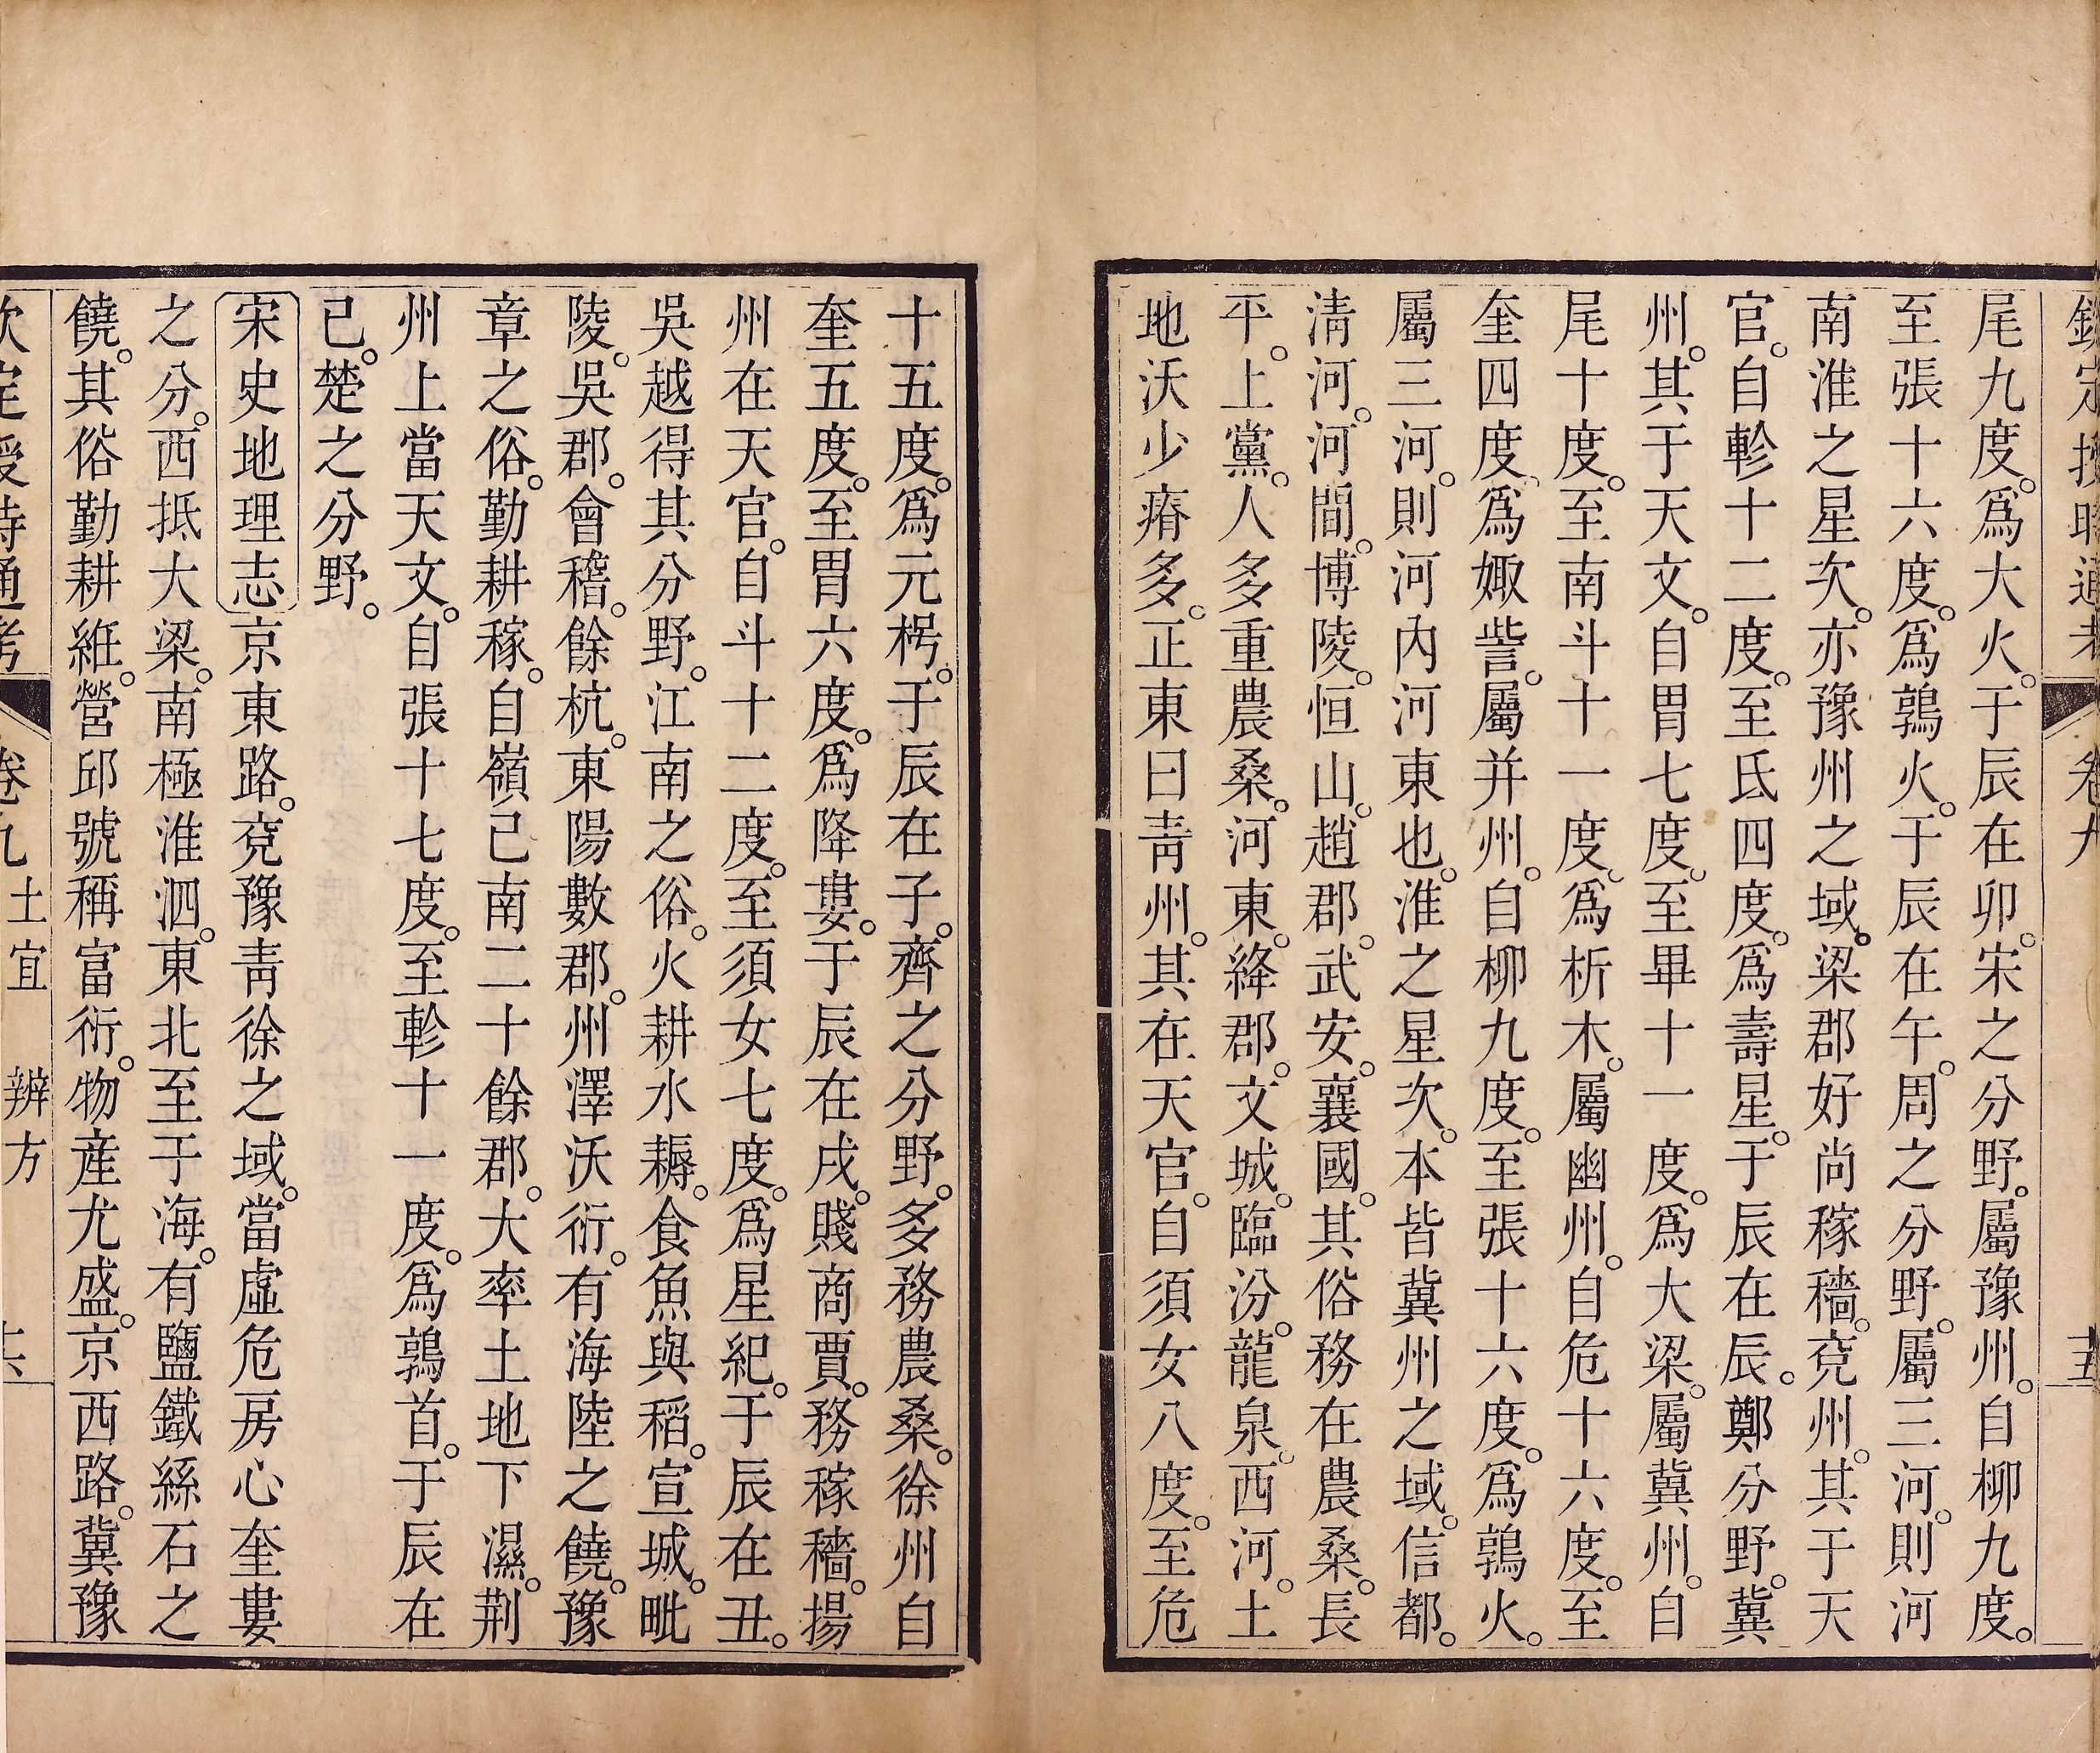 欽定授時通考 卷九 十五
尾九度。爲大火。于辰在卯。宋之分野。屬豫州。自柳九度。
至張十六度。爲鶉火。于辰在午。周之分野。屬三河。則河
南淮之星次。亦豫州之域。梁郡好尚稼穡。兗州。其于天
官。自軫十二度。至氐四度。爲壽星。于辰在辰。鄭分野。冀
州。其于天文。自胃七度。至畢十一度。爲大梁。屬冀州。自
尾十度。至南斗十一度。爲析木。屬幽州。自危十六度。至
奎四度。爲娵訾。屬并州。自柳九度。至張十六度。爲鶉火。
屬三河。則河內河東也。淮之星次。本皆冀州之域。信都。
淸河。河間。博陵。恒山。趙郡。武安。襄國。其俗務在農桑。長
平。上黨。人多重農桑。河東。絳郡。文城。臨汾。龍泉。西河。土
地沃少瘠多。正東曰靑州。其在天官。自須女八度。至危
十五度。爲元枵。于辰在子。齊之分野。多務農桑。徐州自
奎五度。至胃六度。爲降婁。于辰在戌。賤商賈。務稼穡。揚
州在天官。自斗十二度。至須女七度。爲星紀。于辰在丑。
吳越得其分野。江南之俗。火耕水耨。食魚與稻。宣城。毗
陵。吳郡。會稽。餘杭。東陽數郡。州澤沃衍。有海陸之饒。豫
章之俗。勤耕稼。自嶺已南二十餘郡。大率土地下濕。荆
州上當天文。自張十七度。至軫十一度。爲鶉首。于辰在
已。楚之分野。
宋史地理志京東路。兗豫靑徐之域。當虛危房心奎婁
之分。西抵大梁。南極淮泗。東北至于海。有鹽鐵絲石之
饒。其俗勤耕絍。營邱號稱富衍。物產尤盛。京西路。冀豫
欽定授時通考 卷九 土宜 辨方 十六